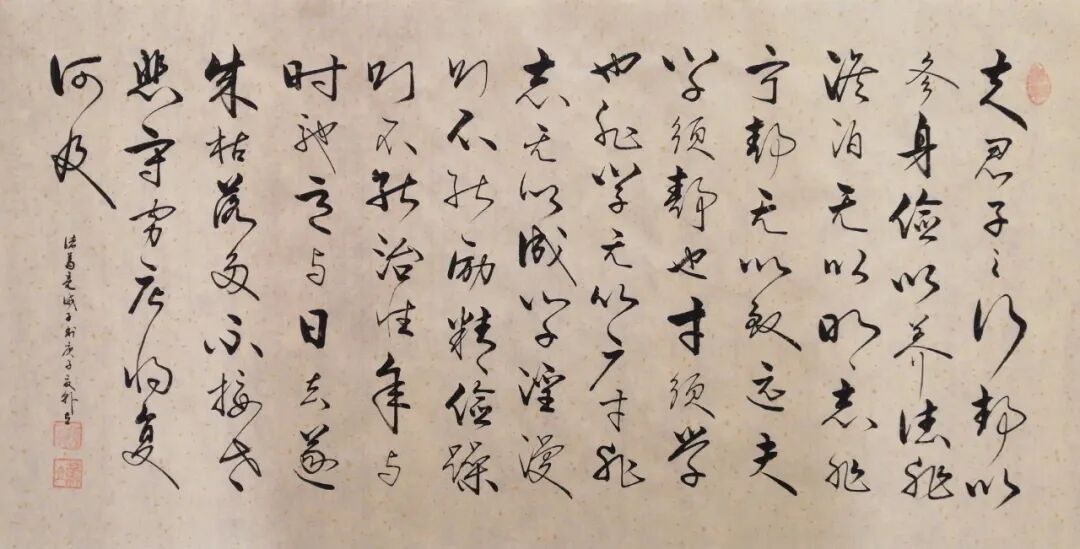 夫君子之行静以
修身俭以养德非
澹泊无以明志非
宁静无以致远夫
学须静也才须学
也非学无以广才非
志无以成学淫漫
则不能励精险躁
则不能治性年与
时驰意与日去遂
成枯落多不接世
悲守穷庐将复
何及
诸葛亮诫子书庚子